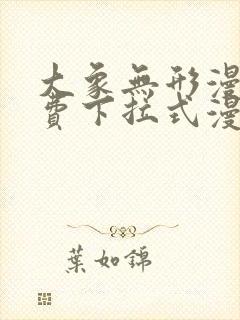 大象無形漫
費下拉式漫
葉如錦